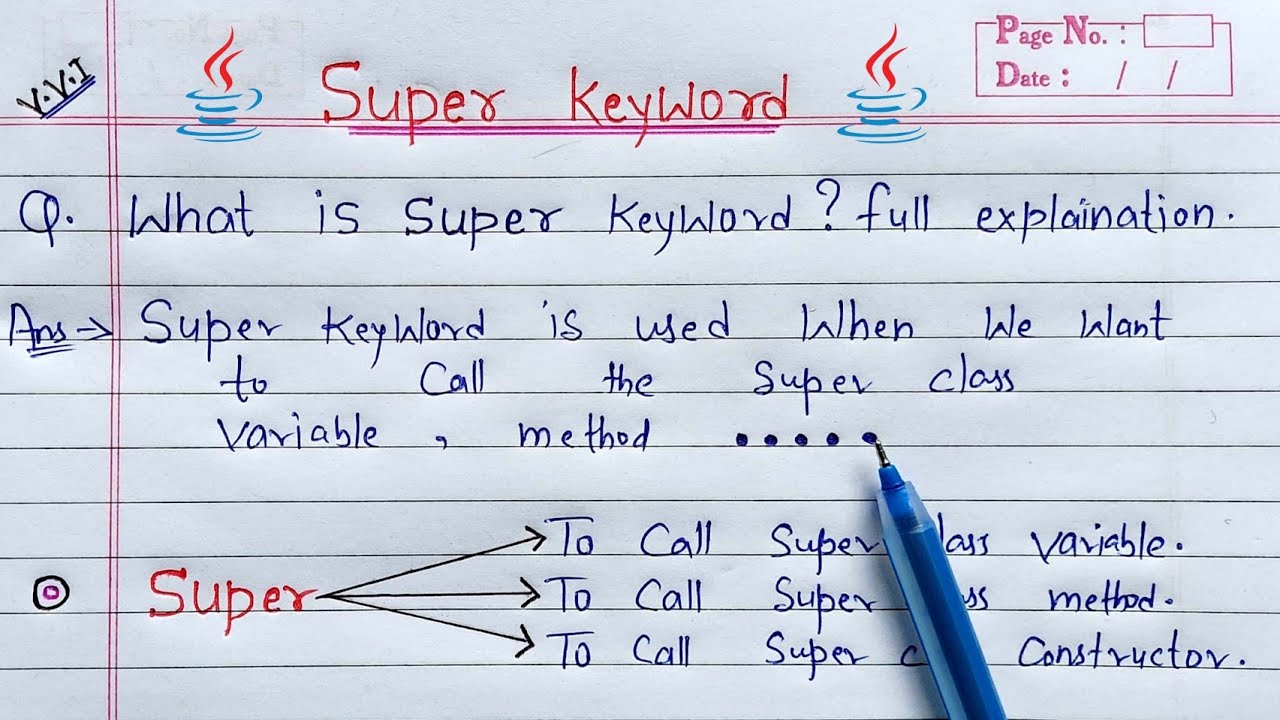 V.V.I
Super Keyword
Page No. :
Date : / /
Q. What is Super Keyword? full explaination.
Ans → Super Keyword is used When We Want
to Call the Super class
variable , method •••••
To Call Super class variable.
Super To Call Super class method.
To Call Super class Constructor.